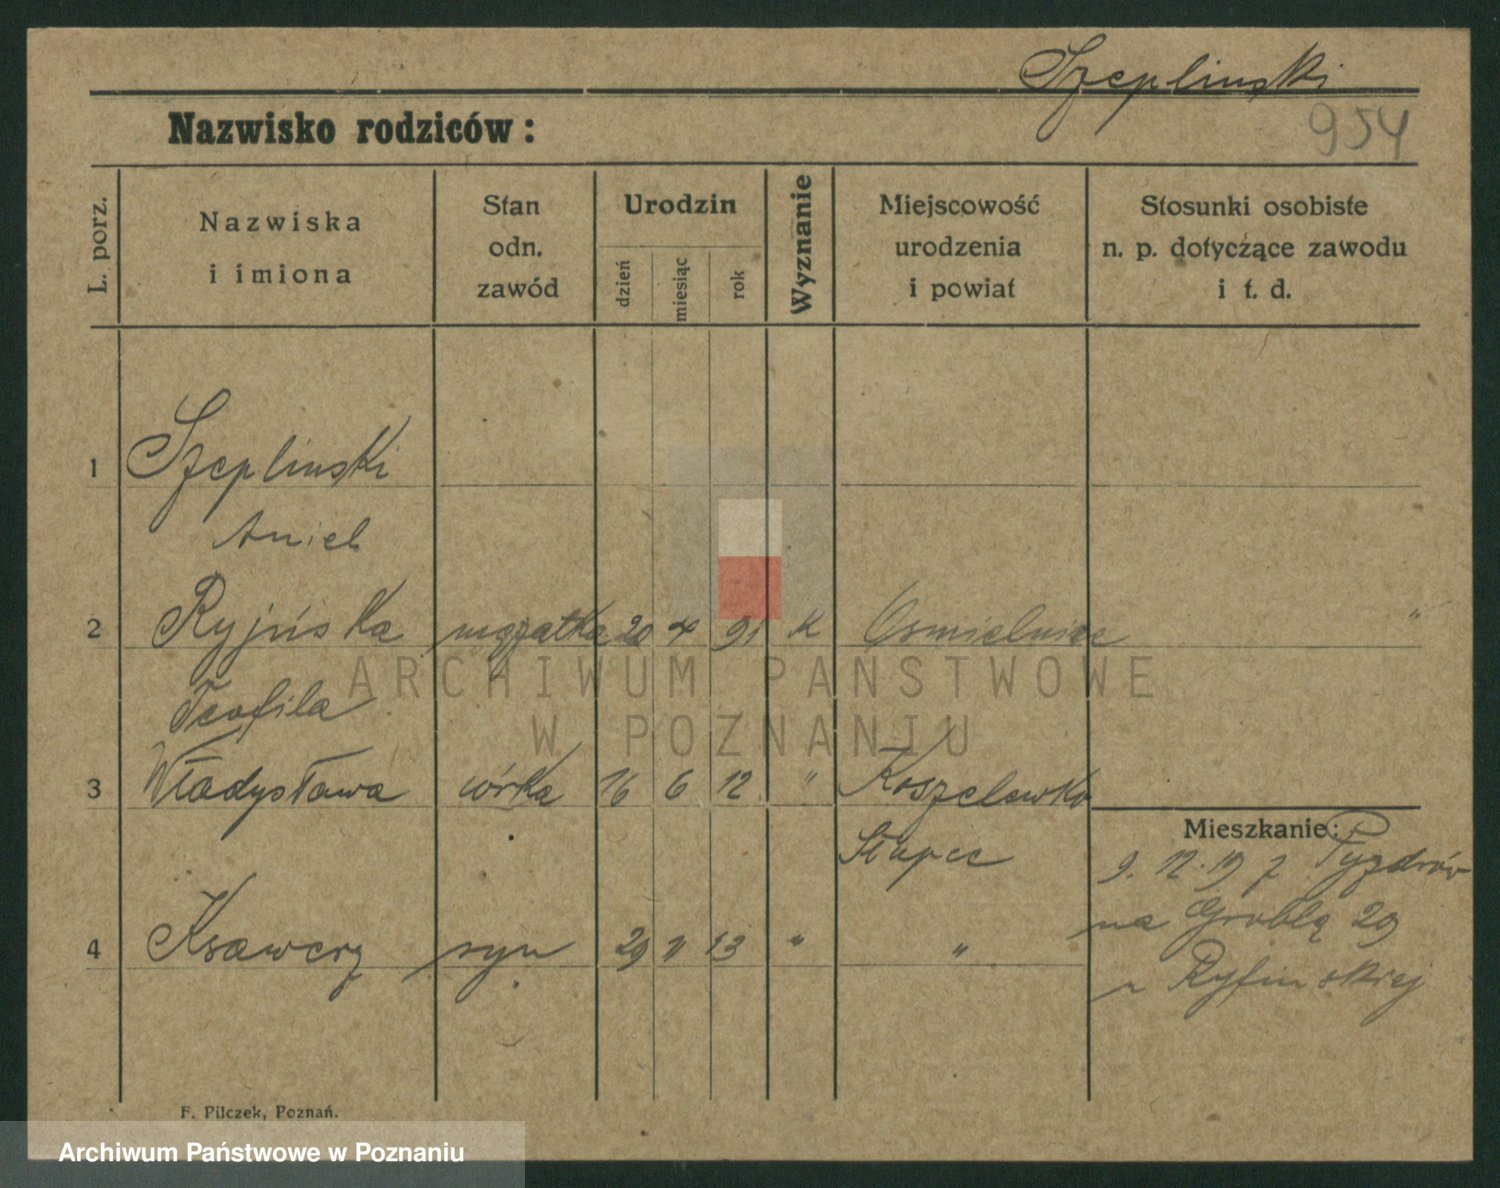 Szeplinski
954
Nazwisko rodziców:
L. porz.
Nazwiska
i imiona
Stan
odn.
zawód
Urodzin
dzień
miesiąc
rok
Wyznanie
Miejscowość
urodzenia
i powiat
Stosunki osobiste
n. p. dotyczące zawodu
i t. d.
1 Szeplinski
Aniel
2 Ryfińska mężatka 20 4 91 K "
Teofila
3 Władysława córka 16 6 12 " Koszelewko
Słupca
4 Ksawery syn 29 11 13 " "
Mieszkanie:
9. 12. 19 z Pyzdrów
na Groblą 29
u Ryfinskiej
F. Pilczek, Poznań.
ARCHIWUM PAŃSTWOWE
W POZNANIU
Archiwum Państwowe w Poznaniu